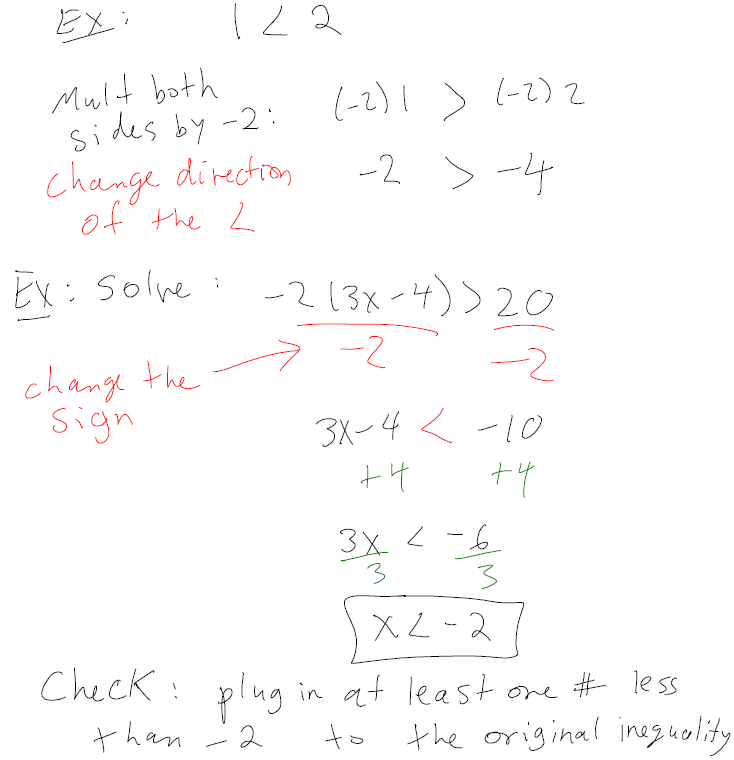 Ex: 1 < 2
Mult both
sides by -2: (-2)1 > (-2)2
change direction -2 > -4
of the <
Ex: Solve: -2(3x-4) > 20
-2 -2
change the
sign
3x-4 < -10
+4 +4
3x < -6
3 3
x < -2
Check: plug in at least one # less
than -2 to the original inequality